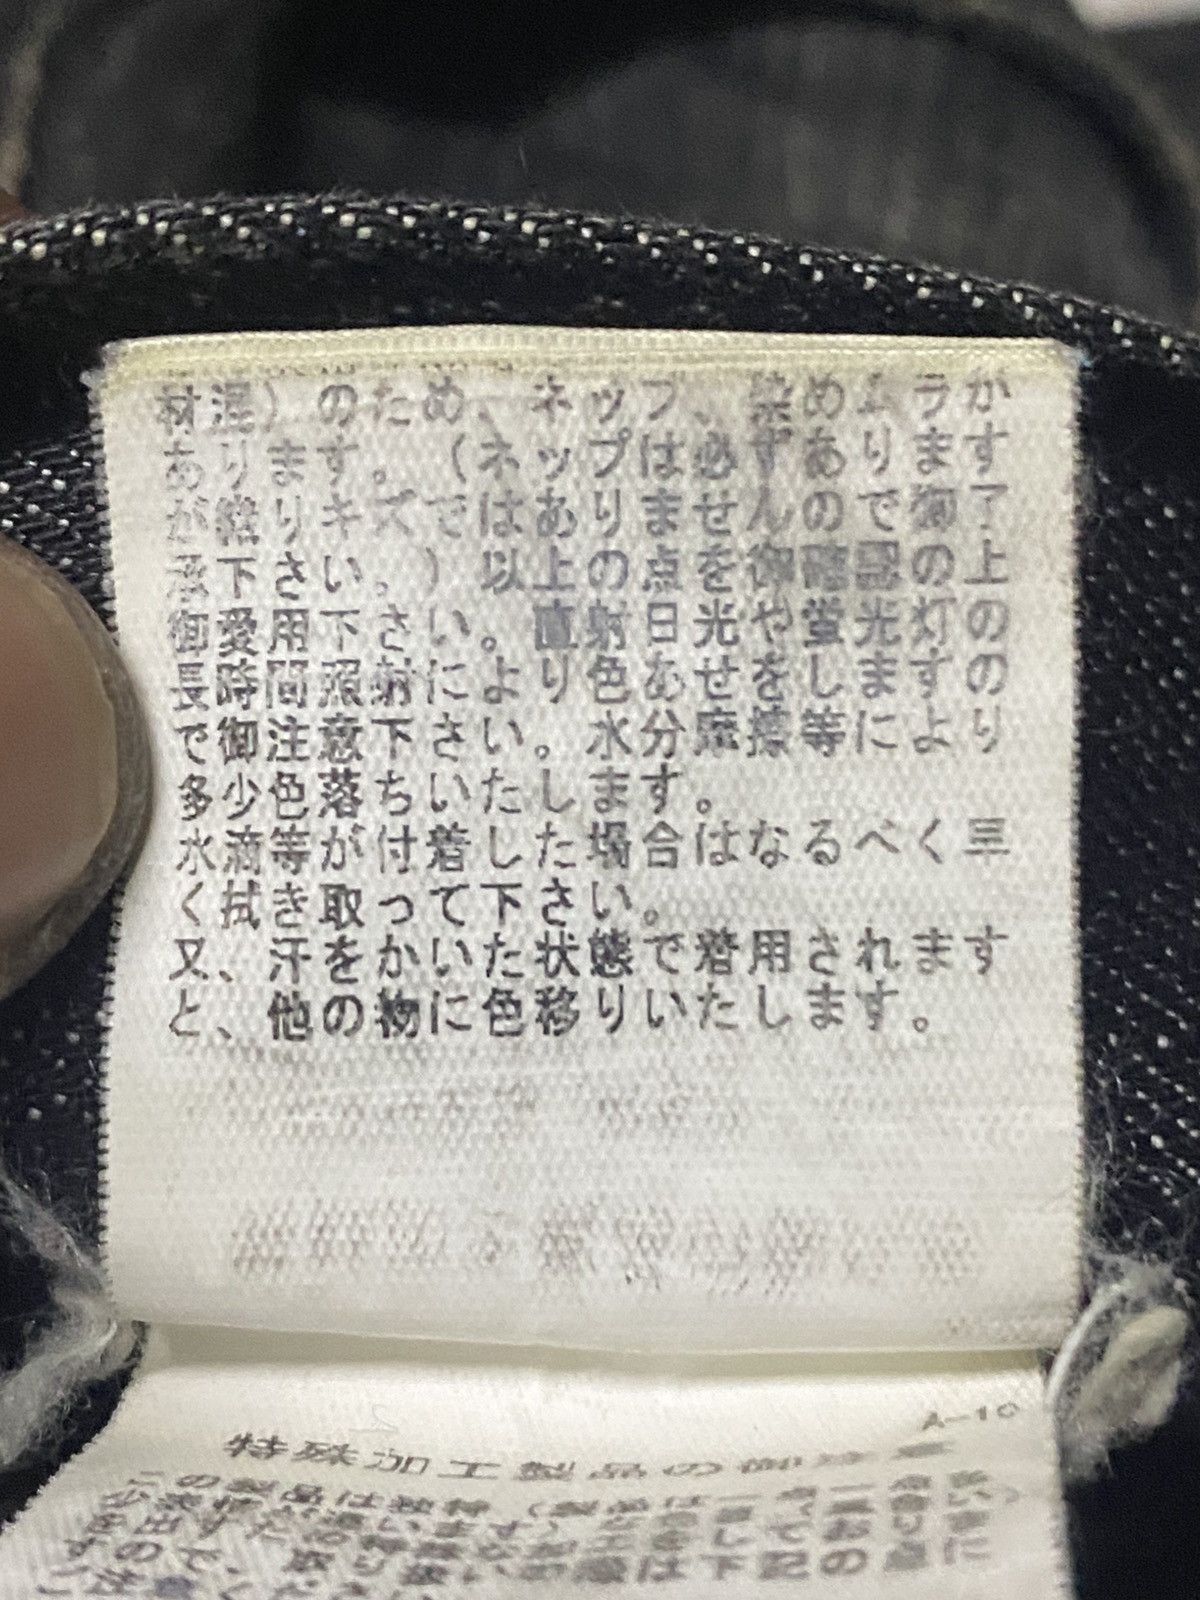 材混）のため、ネップ、染めムラが
あります。（ネップは必ずあります
が織りキズではありませんので御了
承下さい。）以上の点を御確認の上
御愛用下さい。直射日光や蛍光灯の
長時間照射により色あせをしますの
で御注意下さい。水分摩擦等により
多少色落ちいたします。
水滴等が付着した場合はなるべく早
く拭き取って下さい。
又、汗をかいた状態で着用されます
と、他の物に色移りいたします。
A-10
特殊加工製品の御注意
この製品は独特（製品は一点一点
は下記の点に